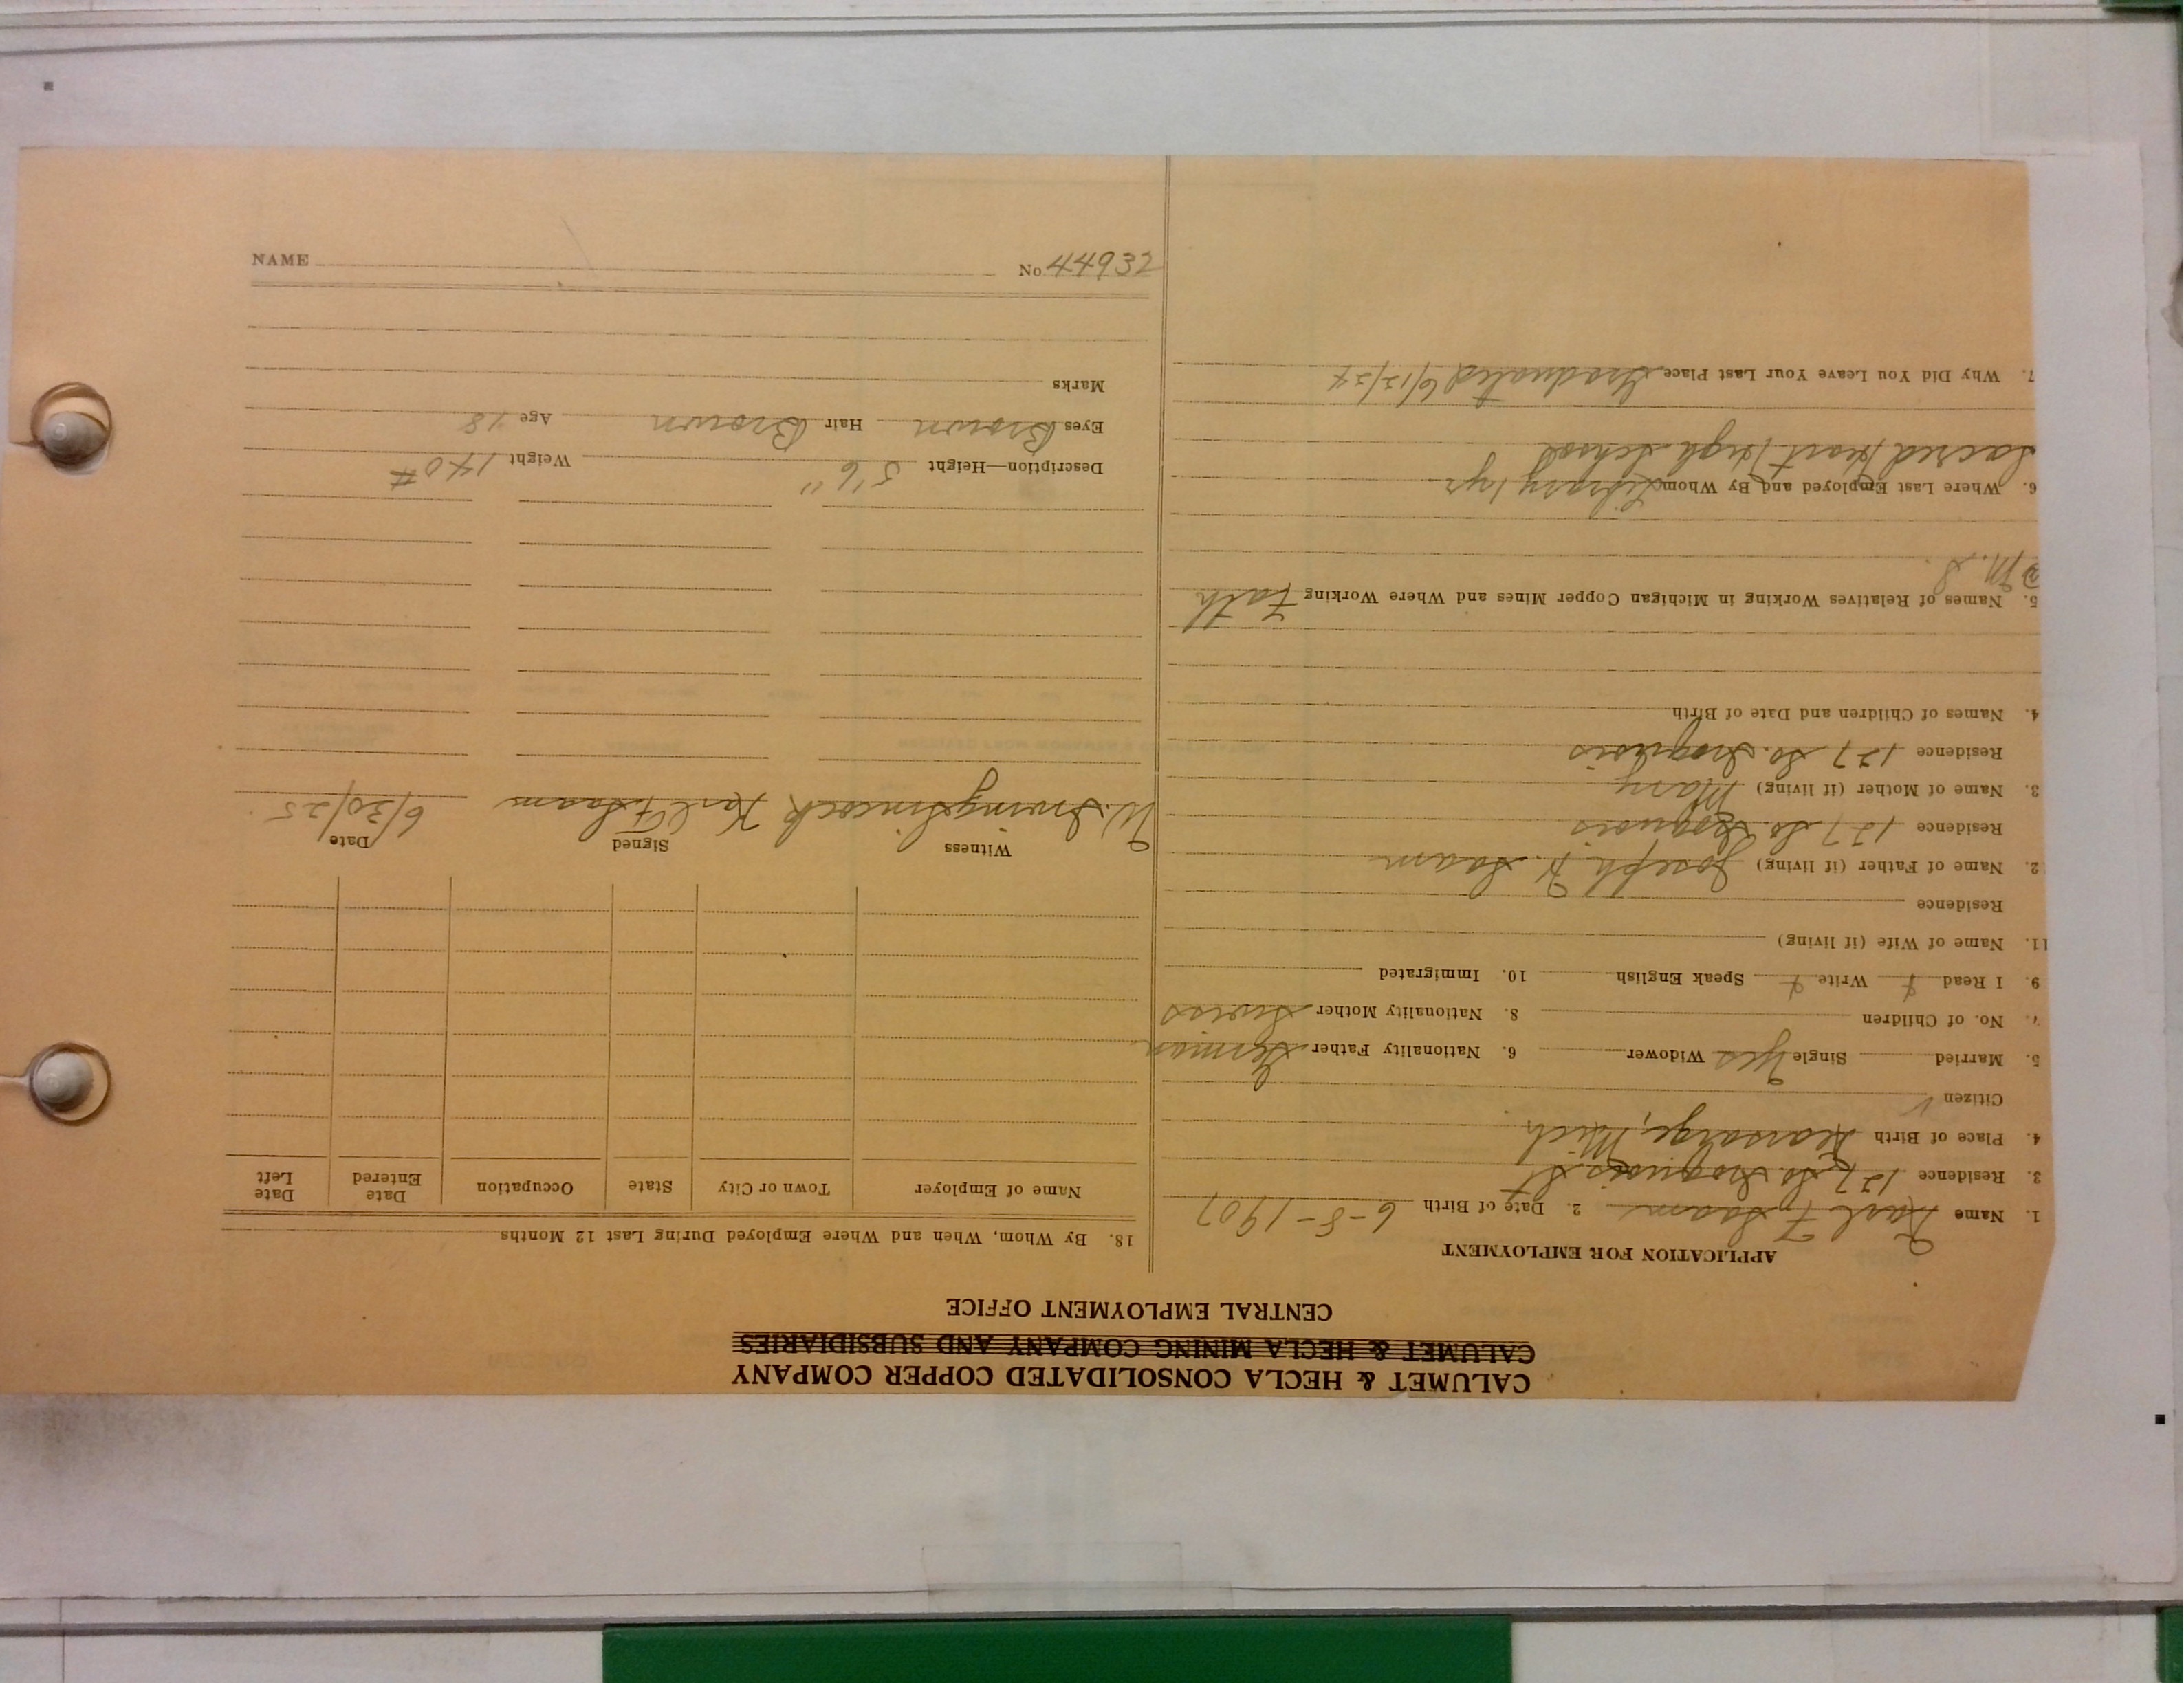 CALUMET & HECLA CONSOLIDATED COPPER COMPANY
CALUMET & HECLA MINING COMPANY AND SUBSIDIARIES
CENTRAL EMPLOYMENT OFFICE
APPLICATION FOR EMPLOYMENT
1. Name Karl F Saam 2. Date of Birth 6-8-1907
3. Residence 127 So. Iroquois St
4. Place of Birth Kearsarge, Mich
Citizen ✓
5. Married Single Yes Widower 6. Nationality Father German
7. No. of Children 8. Nationality Mother Swiss
9. I Read Write Speak English 10. Immigrated
11. Name of Wife (if living)
Residence
12. Name of Father (if living) Joseph H. Saam
Residence 127 So. Iroquois
3. Name of Mother (if living) Mary
Residence 127 So. Iroquois
4. Names of Children and Date of Birth
5. Names of Relatives Working in Michigan Copper Mines and Where Working Fath
M. S.
6. Where Last Employed and By Whom Library 1 yr
Sacred Heart High School
7. Why Did You Leave Your Last Place Graduated 6/12/24
18. By Whom, When and Where Employed During Last 12 Months
Name of Employer Town or City State Occupation Date Entered Date Left
Witness Signed Date
W. Irving Sincock Karl F. Saam 6/30/25
Description—Height 5'6" Weight 140 #
Eyes Brown Hair Brown Age 18
Marks
NAME No 44932